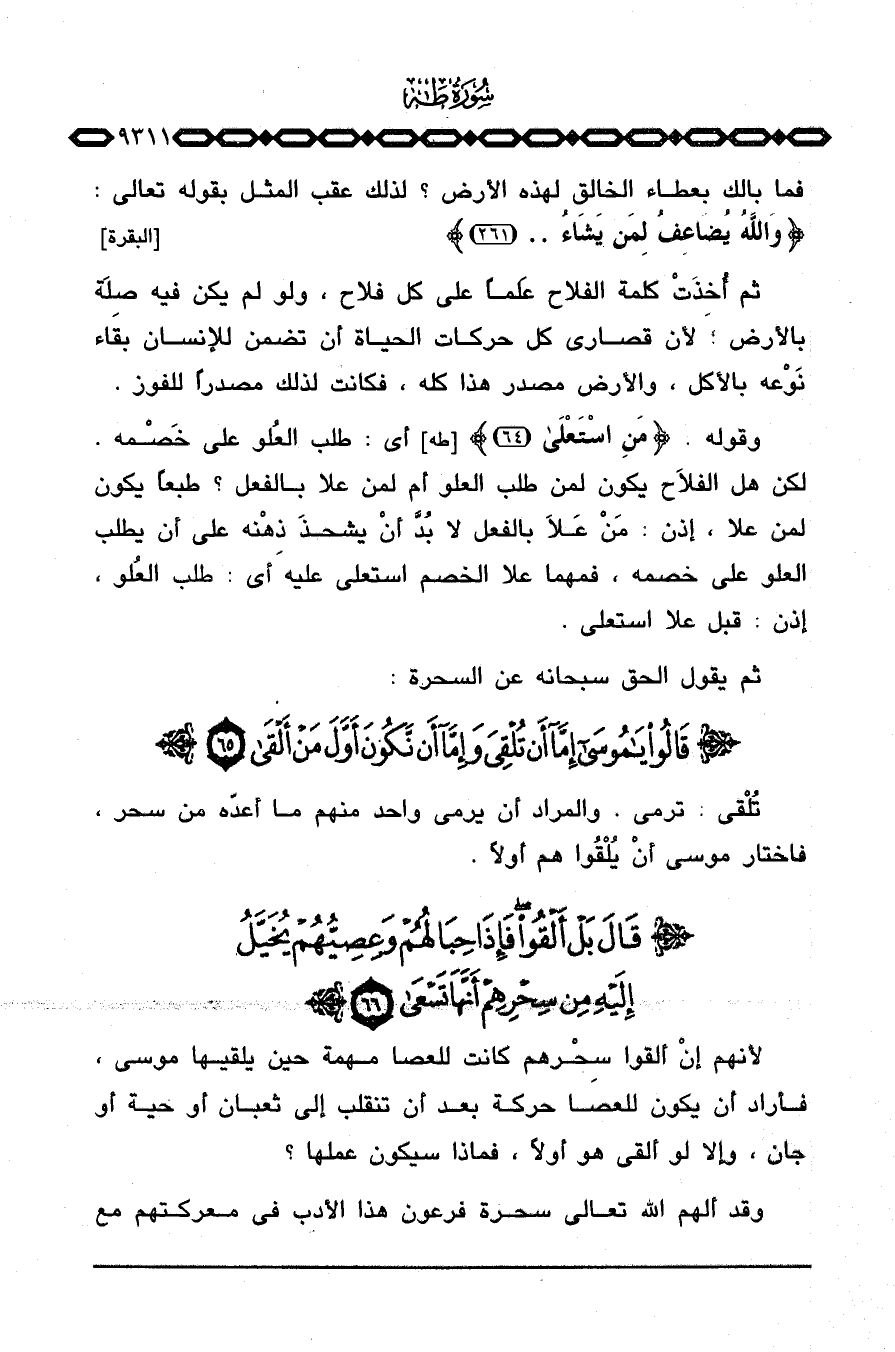 سُورَةُ طه
٩٣١١
فما بالك بعطاء الخالق لهذه الأرض ؟ لذلك عقب المثل بقوله تعالى :
﴿ وَاللَّهُ يُضَاعِفُ لِمَن يَشَاءُ .. (٢٦١) ﴾ [البقرة]
ثم أُخذَتْ كلمة الفلاح عَلَماً على كل فلاح ، ولو لم يكن فيه صلَة
بالأرض ؛ لأن قصارى كل حركات الحياة أن تضمن للإنسان بقاء
نَوْعه بالأكل ، والأرض مصدر هذا كله ، فكانت لذلك مصدراً للفوز .
وقوله . ﴿ مَنِ اسْتَعْلَىٰ (٦٤) ﴾ [طه] أى : طلب العُلو على خَصْمه .
لكن هل الفلاَح يكون لمن طلب العلو أم لمن علا بالفعل ؟ طبعاً يكون
لمن علا ، إذن : مَنْ عَلاَ بالفعل لا بُدَّ أنْ يشحذَ ذهْنه على أن يطلب
العلو على خصمه ، فمهما علا الخصم استعلى عليه أى : طلب العُلو ،
إذن : قبل علا استعلى .
ثم يقول الحق سبحانه عن السحرة :
﴿ قَالُوا۟ يَٰمُوسَىٰٓ إِمَّآ أَن تُلْقِىَ وَإِمَّآ أَن نَّكُونَ أَوَّلَ مَنْ أَلْقَىٰ ٦٥ ﴾
تُلْقى : ترمى . والمراد أن يرمى واحد منهم ما أعدّه من سحر ،
فاختار موسى أنْ يُلْقُوا هم أولاً .
﴿ قَالَ بَلْ أَلْقُوا۟ۖ فَإِذَا حِبَالُهُمْ وَعِصِيُّهُمْ يُخَيَّلُ
إِلَيْهِ مِن سِحْرِهِمْ أَنَّهَا تَسْعَىٰ ٦٦ ﴾
لأنهم إنْ ألقوا سِحْرهم كانت للعصا مهمة حين يلقيها موسى ،
فأراد أن يكون للعصا حركة بعد أن تنقلب إلى ثعبان أو حية أو
جان ، وإلا لو ألقى هو أولاً ، فماذا سيكون عملها ؟
وقد ألهم الله تعالى سحرة فرعون هذا الأدب فى معركتهم مع